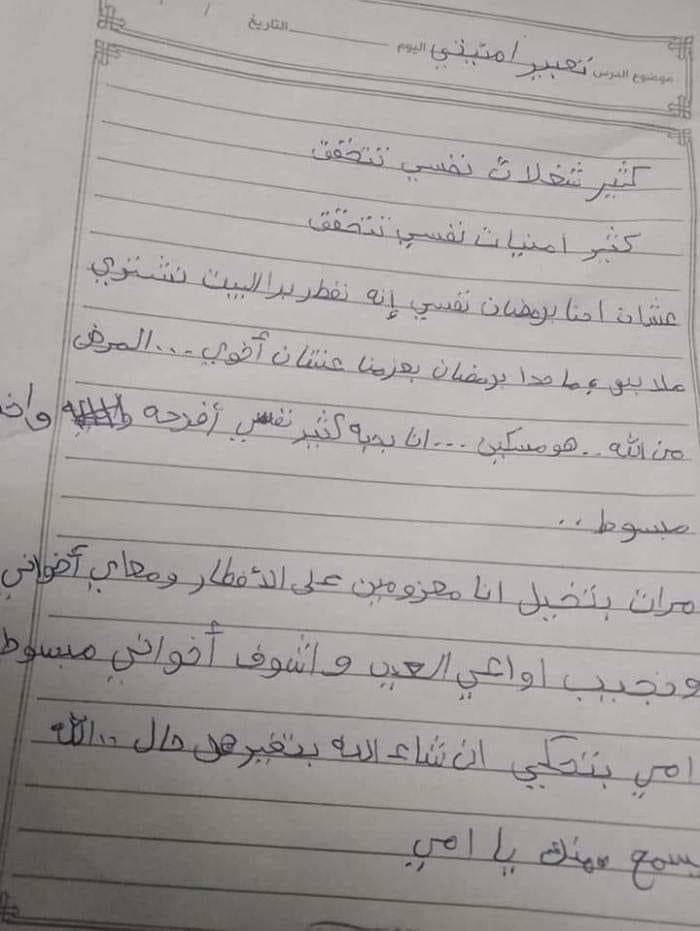 موضوع الدرس تعبير امنيتي اليوم التاريخ / /
كثير شغلات نفسي تتحقق
كثير امنيات نفسي تتحقق
عشان احنا برمضان نفسي إنه نفطر برا البيت نشتري
ملابس وما حدا برمضان بعزمنا عشان أخوي ... المرض
من الله .. هو مسكين ... انا بحبه كثير نفسي أفرحه
مبسوط ..
مرات بتخيل انا معزومين على الأفطار ومعاي أخواني
ونجيب اواعي العيد واشوف أخواني مبسوط
امي بتحكي ان شاء الله بتغير هل حال .. الله
يسمع منك يا امي